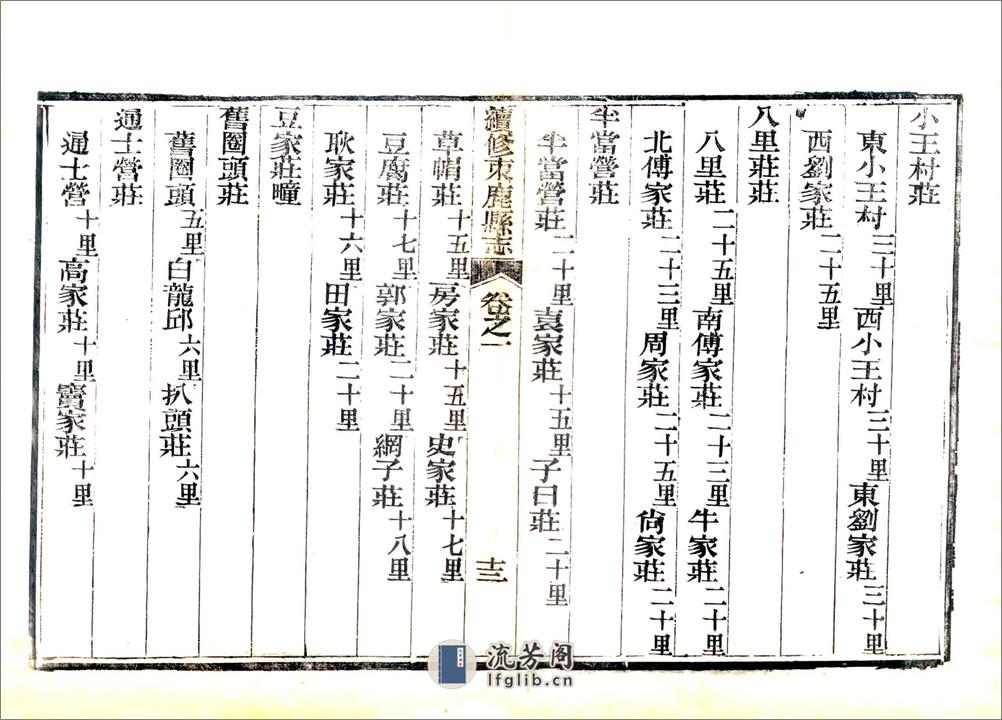 小王村莊
東小王村三十里西小王村三十里東劉家莊三十里
西劉家莊二十五里
八里莊莊
八里莊二十五里南傅家莊二十三里牛家莊二十里
北傅家莊二十三里周家莊二十五里尙家莊二十里
半當營莊
半當營莊二十里袁家莊十五里子曰莊二十里
續修束鹿縣志 卷之一 十三
草帽莊十五里房家莊十五里史家莊十七里
豆腐莊十七里郭家莊二十里網子莊十八里
耿家莊十六里田家莊二十里
豆家莊疃
舊圈頭莊
舊圈頭五里白龍邱六里扒頭莊六里
通士營莊
通士營十里高家莊十里竇家莊十里
流芳阁
lfglib.cn